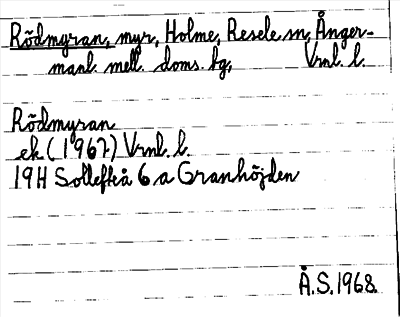 Rödmyran, myr, Holme, Resele sn, Ånger-
manl. mell. doms. bg, Vrnl. l.
Rödmyran
ek (1967) Vrnl. l.
19H Sollefteå 6 a Granhöjden
Å.S. 1968